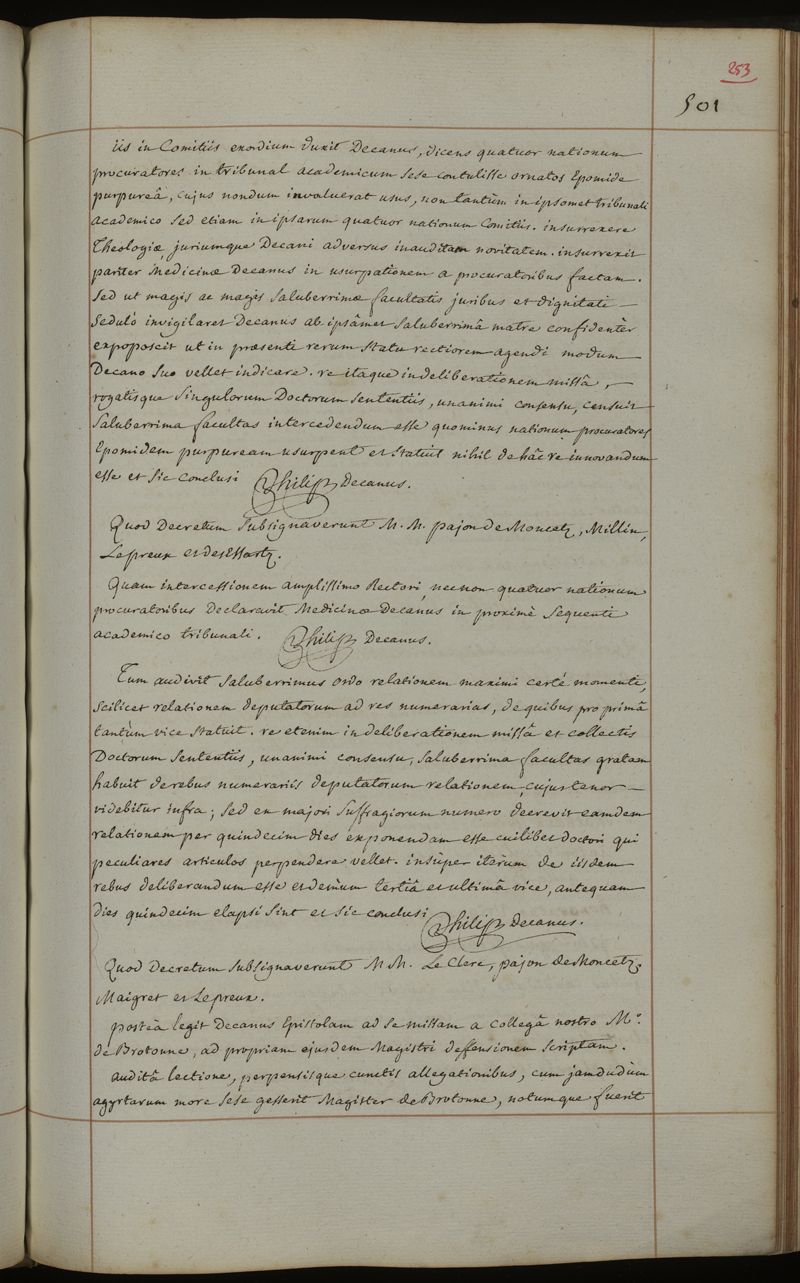 253
501
iis in Comitiis exordium duxit Decanus, dicens quatuor nationum
procuratores in tribunal academicum sese contulisse ornatos Epomide
purpureâ, cujus nondum involuerat usus, non tantùm in ipsomet tribunali
academico sed etiam in ipsarum quatuor nationum Comitiis. insurrexere
Theologiæ, juriumque Decani adversus inauditam novitatem. insurrexit
pariter Medicinæ Decanus in usurpationem a procuratoribus factam.
Sed ut magis ac magis Saluberrimæ facultatis juribus et dignitati
Sedulò invigilaret Decanus ab ipsâmet Saluberrimâ matre confidentèr
expoposcit ut in præsenti rerum statu rectiorem agendi modum
Decano Suo vellet indicare. re itaque in deliberationem missâ,
rogatisque Singulorum Doctorum Sententiis, unanimi consensu, censuit
Saluberrima facultas intercedendum esse quominus nationum procuratores
Epomidem purpuream usurpent et statuit nihil de hâc re innovandum
esse et sic conclusi Philip Decanus.
Quod Decretum Subsignaverunt M. M. pajon de Moncetz, Millin,
Lepreux et desEssartz.
Quam intercessionem amplissimo Rectori, necnon quatuor nationum
procuratoribus Declaravit Medicinæ Decanus in proximè Sequenti
academico tribunali. Philip Decanus.
Tum audivit Saluberrimus ordo relationem maximi certè momenti,
Scilicet relationem deputatorum ad res numerarias, de quibus pro primâ
tantùm vice statuit. re etenim in deliberationem missâ et collectis
Doctorum Sententiis, unanimi consensu, Saluberrima facultas gratam
habuit de rebus numerariis deputatorum relationem, cujus tenor
videbitur infra; Sed ex majori Suffragiorum numero decrevit eamdem
relationem per quindecim dies exponendam esse cuilibet doctori qui
peculiares articulos perpendere vellet. insùper iterùm de iisdem
rebus deliberandum esse et demùm tertiâ et ultimâ vice, antequam
dies quindecim elapsi Sint et sic conclusi Philip Decanus.
Quod Decretum Subsignaverunt M M. Le Clerc, pajon de Moncetz,
Maigret et Lepreux.
posteà legit Decanus Epistolam ad Se missam a collegâ nostro M.º
de Brotonne, ad propriam ejusdem Magistri deffensionem Scriptam.
auditâ lectione, perpensisque cunctis allegationibus, cum jamdudùm
agyrtarum more Sese gesserit Magister de Brotonne, notumque fuerit